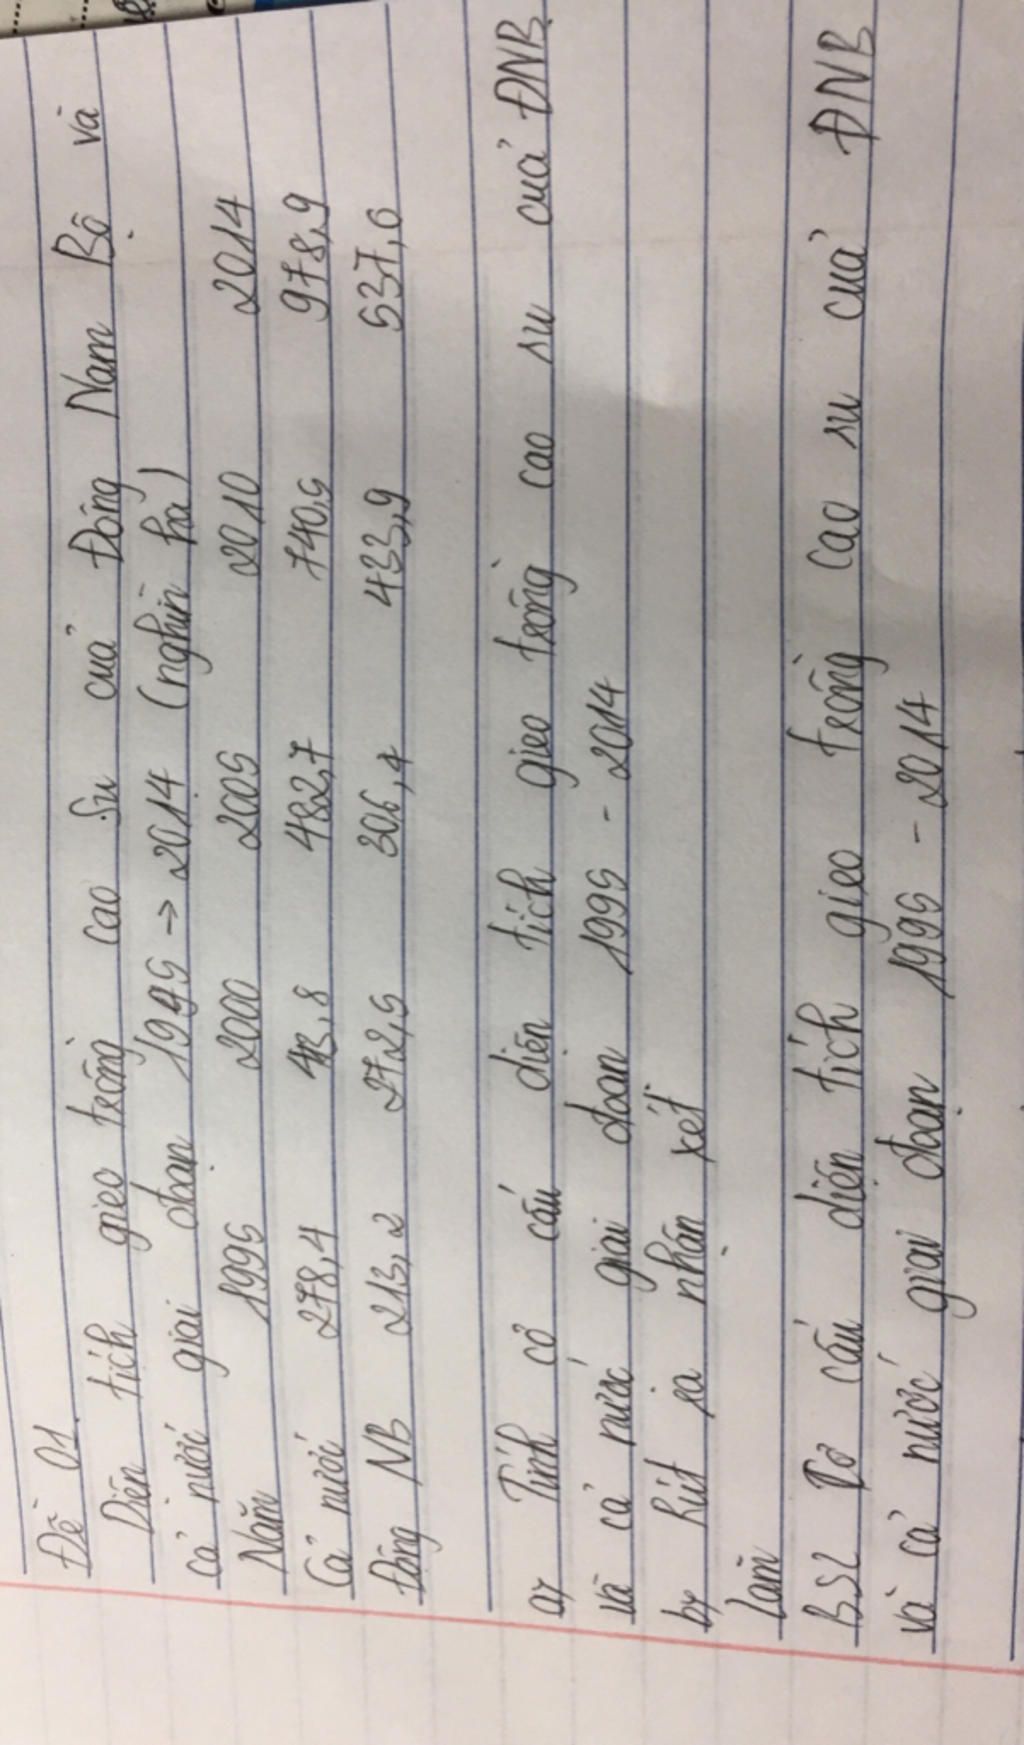 Đề 01.
Diện tích gieo trồng cao su của Đông Nam Bộ và
cả nước giai đoạn 1995 → 2014 (nghìn ha)
Năm 1995 2000 2005 2010 2014
Cả nước 278,4 413,8 482,7 740,5 978,9
Đông NB 213,2 272,5 306,4 433,9 537,0
a, Tính cơ cấu diện tích gieo trồng cao su của ĐNB
và cả nước giai đoạn 1995 - 2014
b, Rút ra nhận xét
Làm
BSL cơ cấu diện tích gieo trồng cao su của ĐNB
và cả nước giai đoạn 1995 - 2014